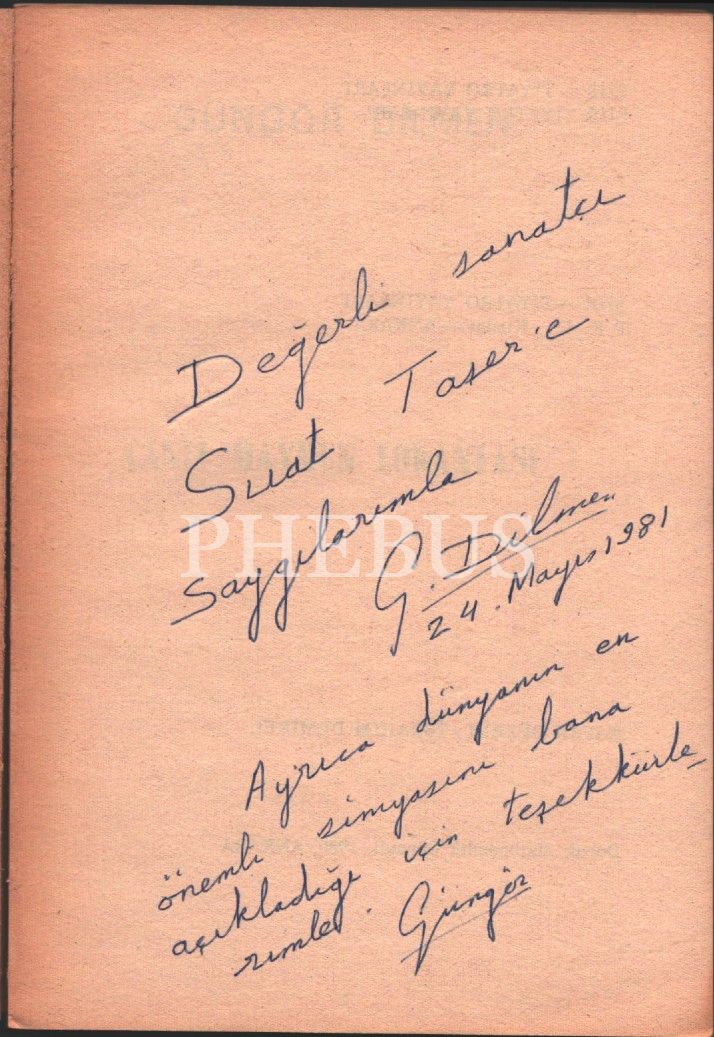 Değerli sanatçı
Suat Taşer'e
Saygılarımla
G. Dilmen
24. Mayıs 1981
PHEBUS
Ayrıca dünyanın en
önemli simyasını bana
açıkladığı için teşekkürle_
rimle. Güngör